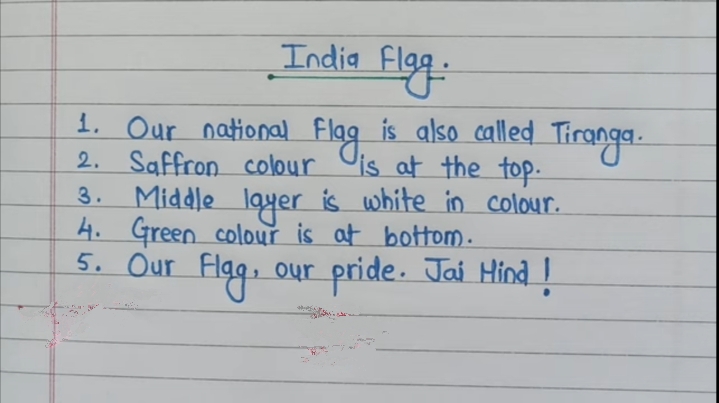 India Flag.
1. Our national Flag is also called Tiranga.
2. Saffron colour is at the top.
3. Middle layer is white in colour.
4. Green colour is at bottom.
5. Our Flag, our pride. Jai Hind !